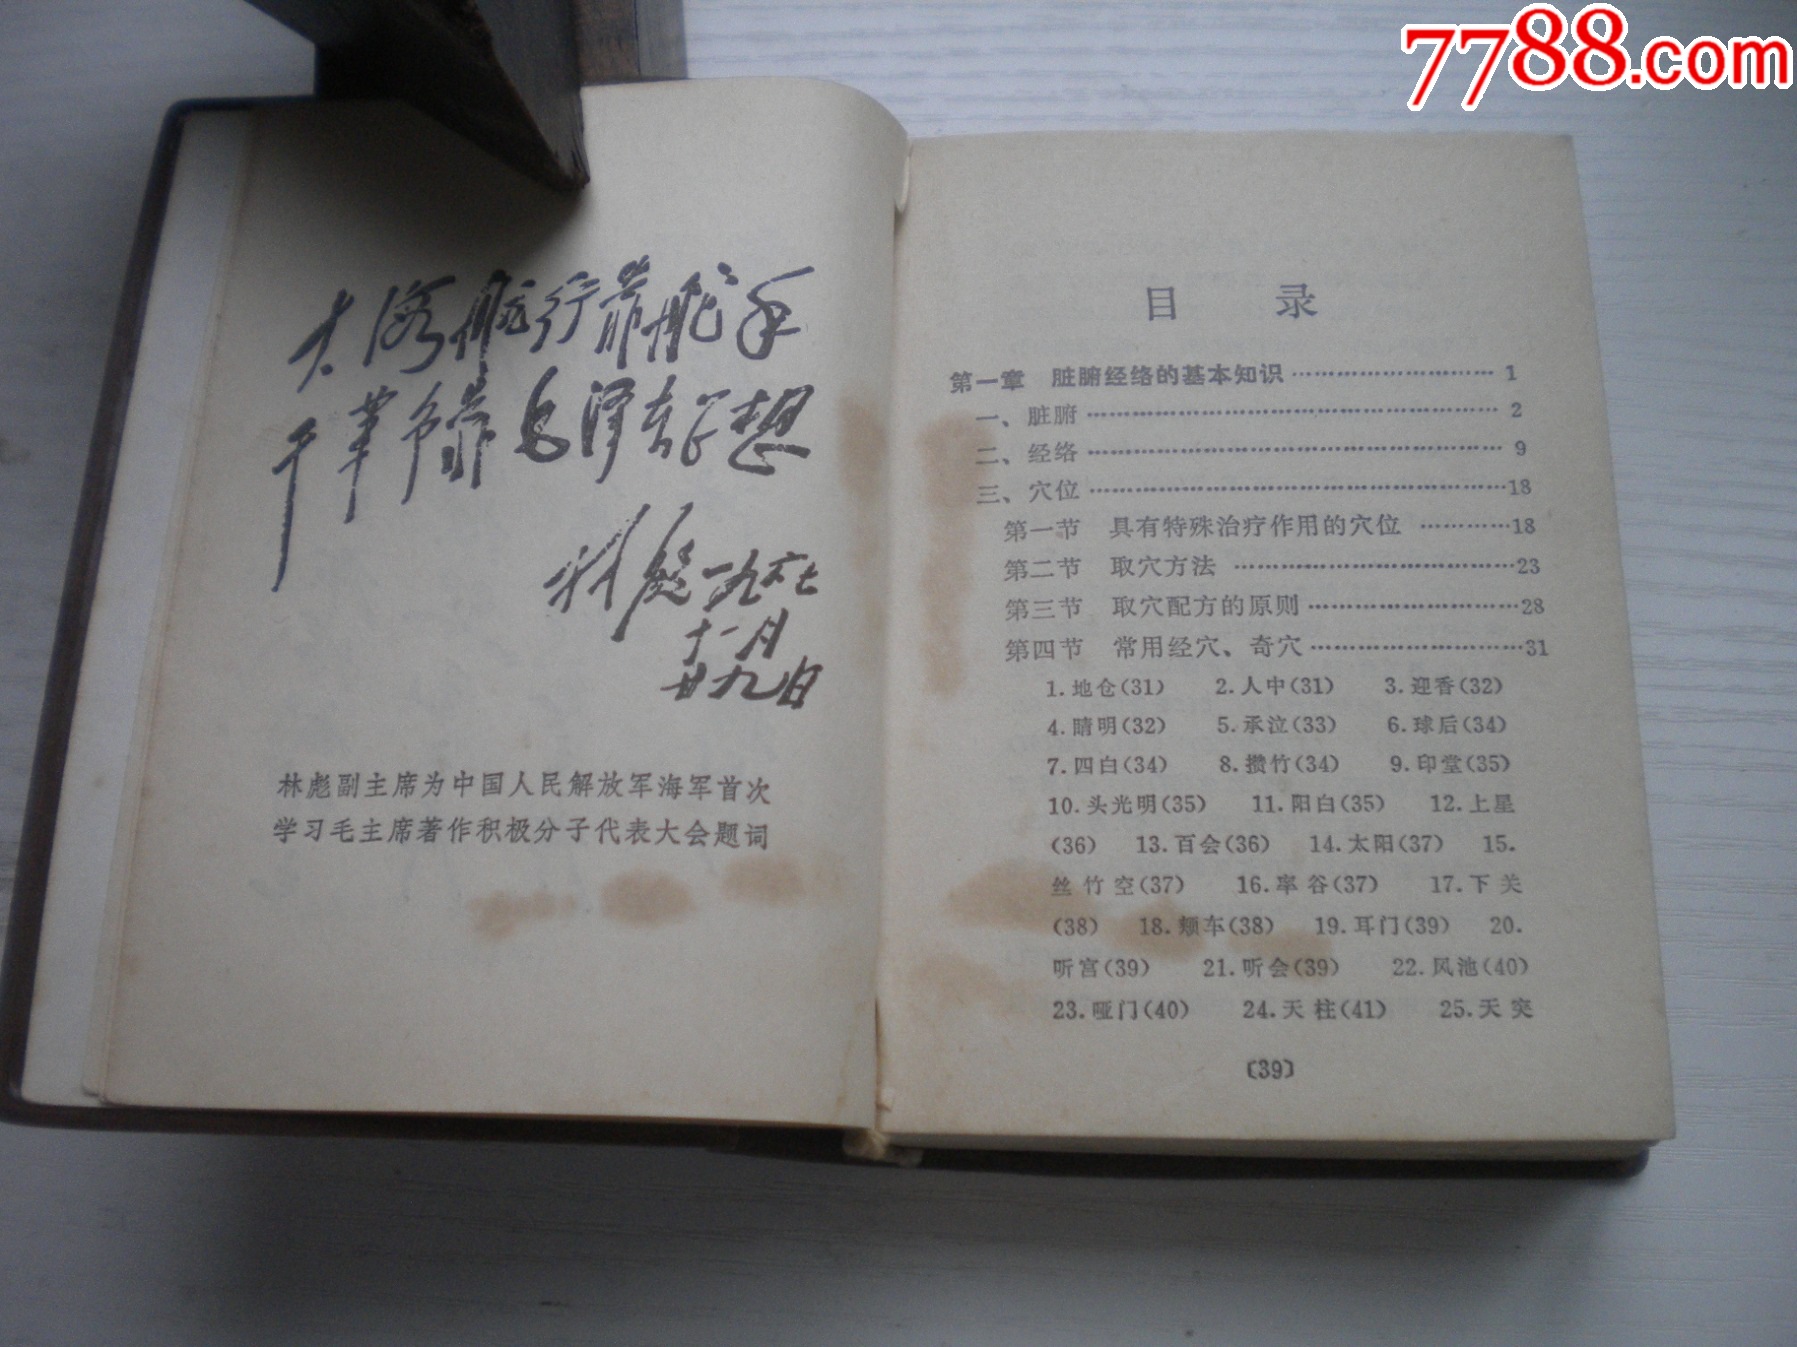 7788.com
大海航行靠舵手
干革命靠毛泽东思想
林彪一九六七
十一月
廿九日
林彪副主席为中国人民解放军海军首次
学习毛主席著作积极分子代表大会题词
目 录
第一章 脏腑经络的基本知识……………………1
一、脏腑……………………………………………2
二、经络……………………………………………9
三、穴位……………………………………………18
第一节 具有特殊治疗作用的穴位 …………18
第二节 取穴方法 ……………………………23
第三节 取穴配方的原则………………………28
第四节 常用经穴、奇穴………………………31
1.地仓(31) 2.人中(31) 3.迎香(32)
4.睛明(32) 5.承泣(33) 6.球后(34)
7.四白(34) 8.攒竹(34) 9.印堂(35)
10.头光明(35) 11.阳白(35) 12.上星
(36) 13.百会(36) 14.太阳(37) 15.
丝竹空(37) 16.率谷(37) 17.下关
(38) 18.颊车(38) 19.耳门(39) 20.
听宫(39) 21.听会(39) 22.风池(40)
23.哑门(40) 24.天柱(41) 25.天突
〔39〕